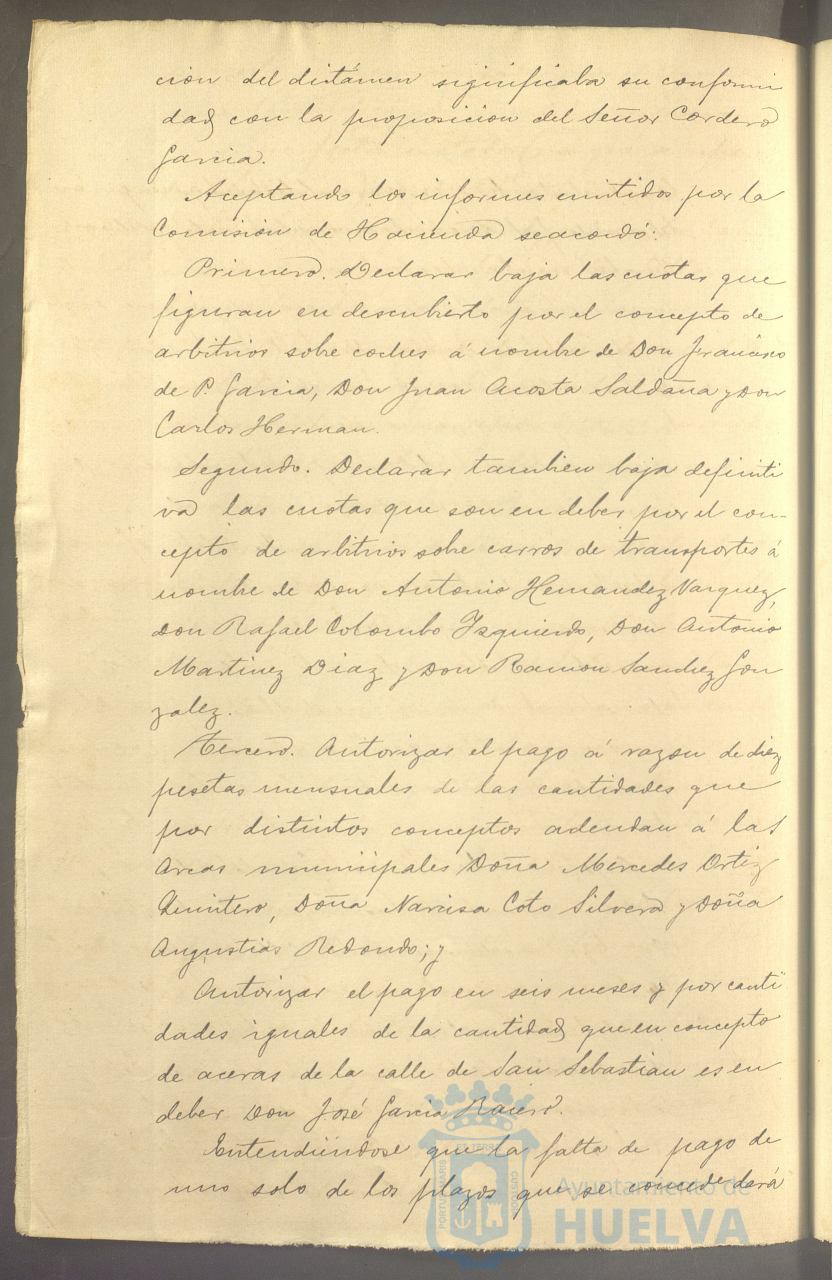 cion del dictámen significaba su conformi
dad con la proposicion del Señor Cordero
Garcia.
Aceptando los informes emitidos por la
Comision de Hacienda se acordó:
Primero. Declarar baja las cuotas que
figuran en descubierto por el concepto de
arbitrios sobre coches á nombre de Don Francisco
de P. Garcia, Don Juan Acosta Saldaña y Don
Carlos Herman.
Segundo. Declarar tambien baja definiti
va las cuotas que son en deber por el con-
cepto de arbitrios sobre carros de transportes á
nombre de Don Antonio Hernandez Vazquez,
Don Rafael Colombo Izquierdo, Don Antonio
Martinez Diaz y Don Ramon Sanchez Gon
zalez.
Tercero. Autorizar el pago á razon de diez
pesetas mensuales de las cantidades que
por distintos conceptos adeudan á las
Arcas municipales Doña Mercedes Ortiz
Quintero, Doña Narcisa Coto Silvera y Doña
Angustias Redondo; y
Autorizar el pago en seis meses y por canti
dades iguales de la cantidad que en concepto
de aceras de la calle de San Sebastian es en
deber Don José Garcia
Entendiéndose que la falta de pago de
uno solo de los plazos que se concede dará
Ayuntamiento de
HUELVA